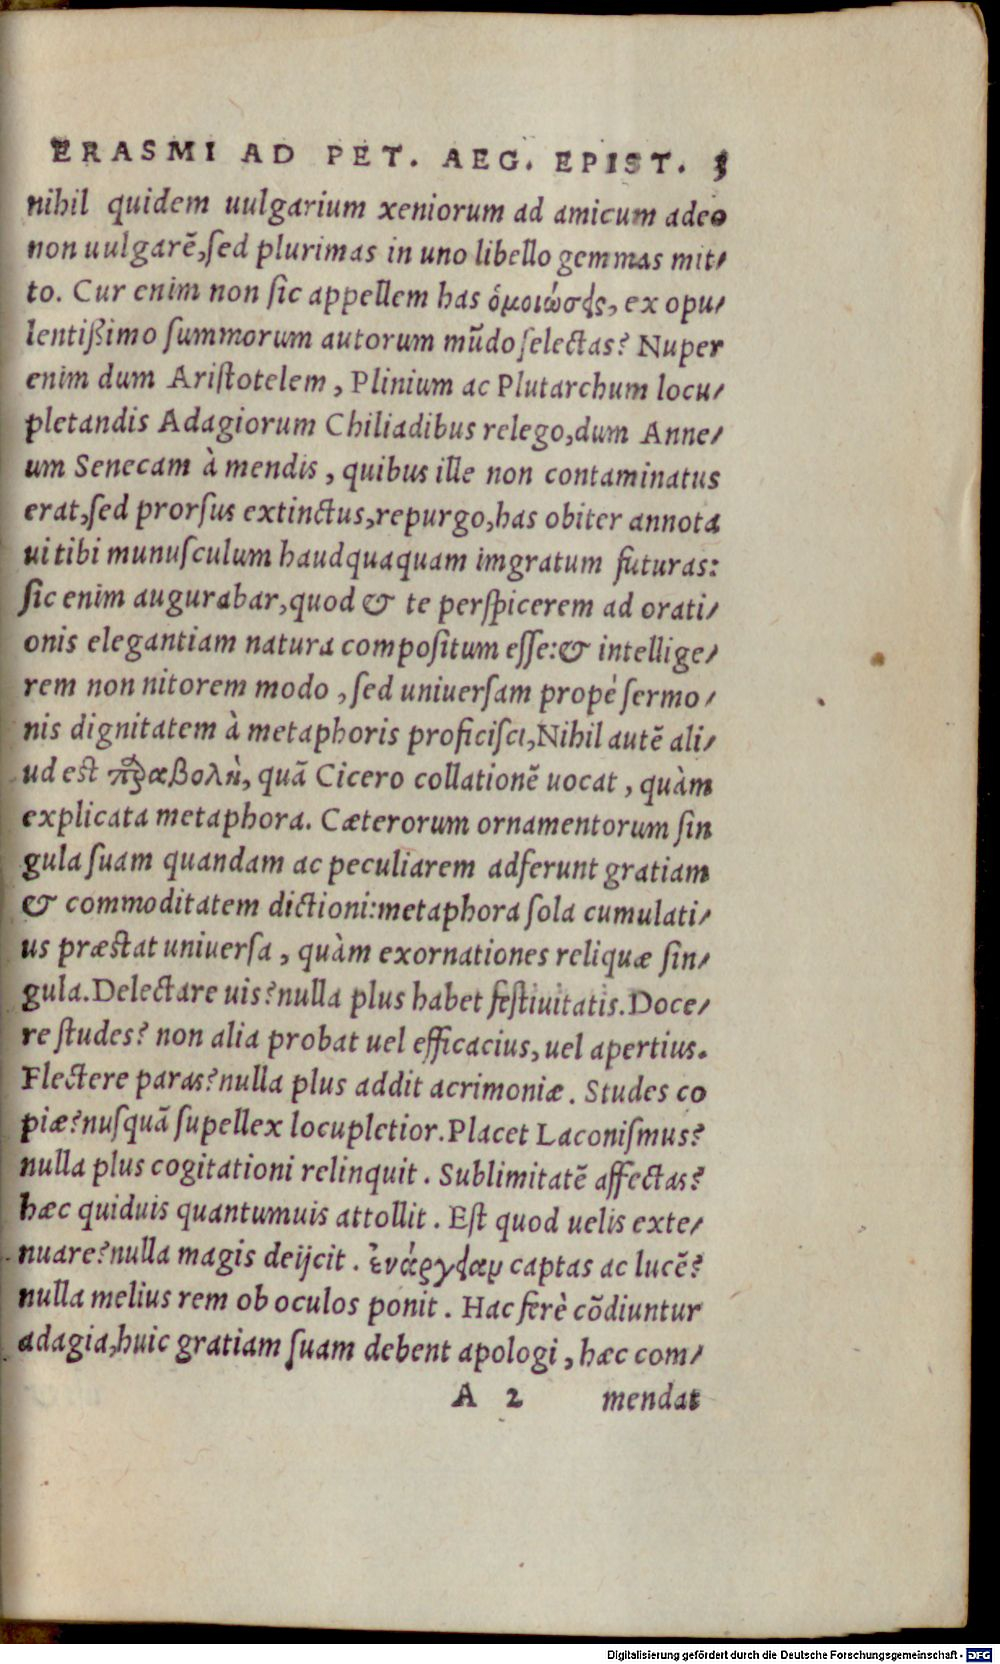 ERASMI AD PET. AEG. EPIST. 3
nihil quidem uulgarium xeniorum ad amicum adeo
non uulgarẽ,ſed plurimas in uno libello gemmas mit⸗
to. Cur enim non ſic appellem has ὁμοιώσεις, ex opu⸗
lentißimo ſummorum autorum mũdo ſelectas? Nuper
enim dum Ariſtotelem, Plinium ac Plutarchum locu⸗
pletandis Adagiorum Chiliadibus relego,dum Anne⸗
um Senecam à mendis, quibus ille non contaminatus
erat,ſed prorſus extinctus,repurgo,has obiter annota
ui tibi munuſculum haudquaquam imgratum futuras:
ſic enim augurabar,quod & te perſpicerem ad orati⸗
onis elegantiam natura compoſitum eſſe:& intellige⸗
rem non nitorem modo, ſed uniuerſam propé ſermo⸗
nis dignitatem à metaphoris proficiſci,Nihil autẽ ali⸗
ud est παραβολὴ, quã Cicero collationẽ uocat, quàm
explicata metaphora. Cæterorum ornamentorum ſin
gula ſuam quandam ac peculiarem adferunt gratiam
& commoditatem dictioni:metaphora ſola cumulati⸗
us præstat uniuerſa, quàm exornationes reliquæ ſin⸗
gula.Delectare uis?nulla plus habet feſtiuitatis.Doce⸗
re ſtudes? non alia probat uel efficacius, uel apertius.
Flectere paras?nulla plus addit acrimoniæ. Studes co
piæ?nuſquã ſupellex locupletior.Placet Laconiſmus?
nulla plus cogitationi relinquit. Sublimitatẽ affectas?
hæc quiduis quantumuis attollit. Eſt quod uelis exte⸗
nuare?nulla magis deijcit. ἐνάργειαν captas ac lucẽ?
nulla melius rem ob oculos ponit. Hac ferè cõdiuntur
adagia,huic gratiam ſuam debent apologi, hæc com⸗
A 2 mendat
Digitalisierung gefördert durch die Deutsche Forschungsgemeinschaft - DFG